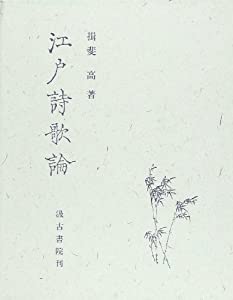 揖斐高著
江戸詩歌論
汲古書院刊